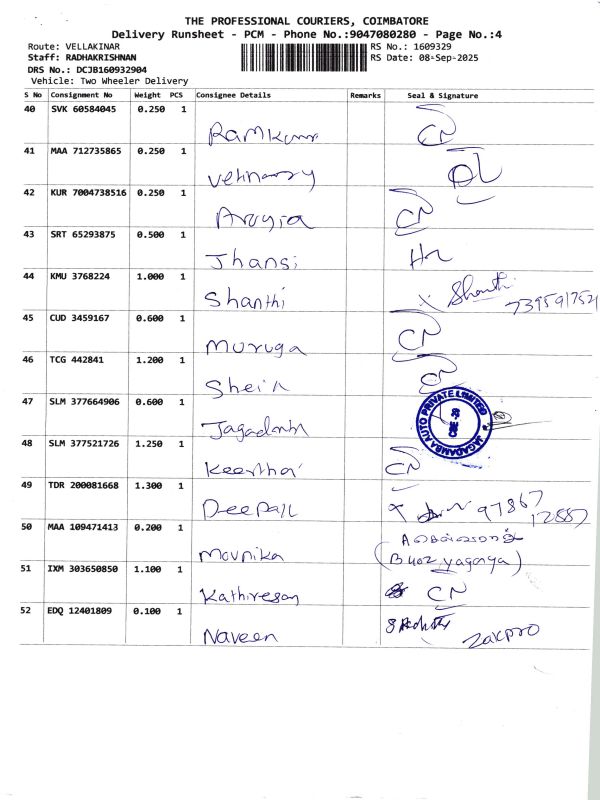 THE PROFESSIONAL COURIERS, COIMBATORE
Delivery Runsheet - PCM - Phone No.:9047080280 - Page No.:4
Route: VELLAKINAR RS No.: 1609329
Staff: RADHAKRISHNAN RS Date: 08-Sep-2025
DRS No.: DCJB160932904
Vehicle: Two Wheeler Delivery
S No Consignment No Weight PCS Consignee Details Remarks Seal & Signature
40 SVK 60584045 0.250 1
Ramkumar CN
41 MAA 712735865 0.250 1
Vetinary
42 KUR 7004738516 0.250 1
Arogia CN
43 SRT 65293875 0.500 1
Jhansi
44 KMU 3768224 1.000 1
Shanthi X Shanthi
7395917521
45 CUD 3459167 0.600 1
Muruga CN
46 TCG 442841 1.200 1
CN
47 SLM 377664906 0.600 1
JAGADAMBA AUTO PRIVATE LIMITED
CBE -29
48 SLM 377521726 1.250 1
CN
49 TDR 200081668 1.300 1
Deepak 97867
12887
50 MAA 109471413 0.200 1
Mounika
51 IXM 303650850 1.100 1
Kathiresan CN
52 EDQ 12401809 0.100 1
Naveen Zakpro